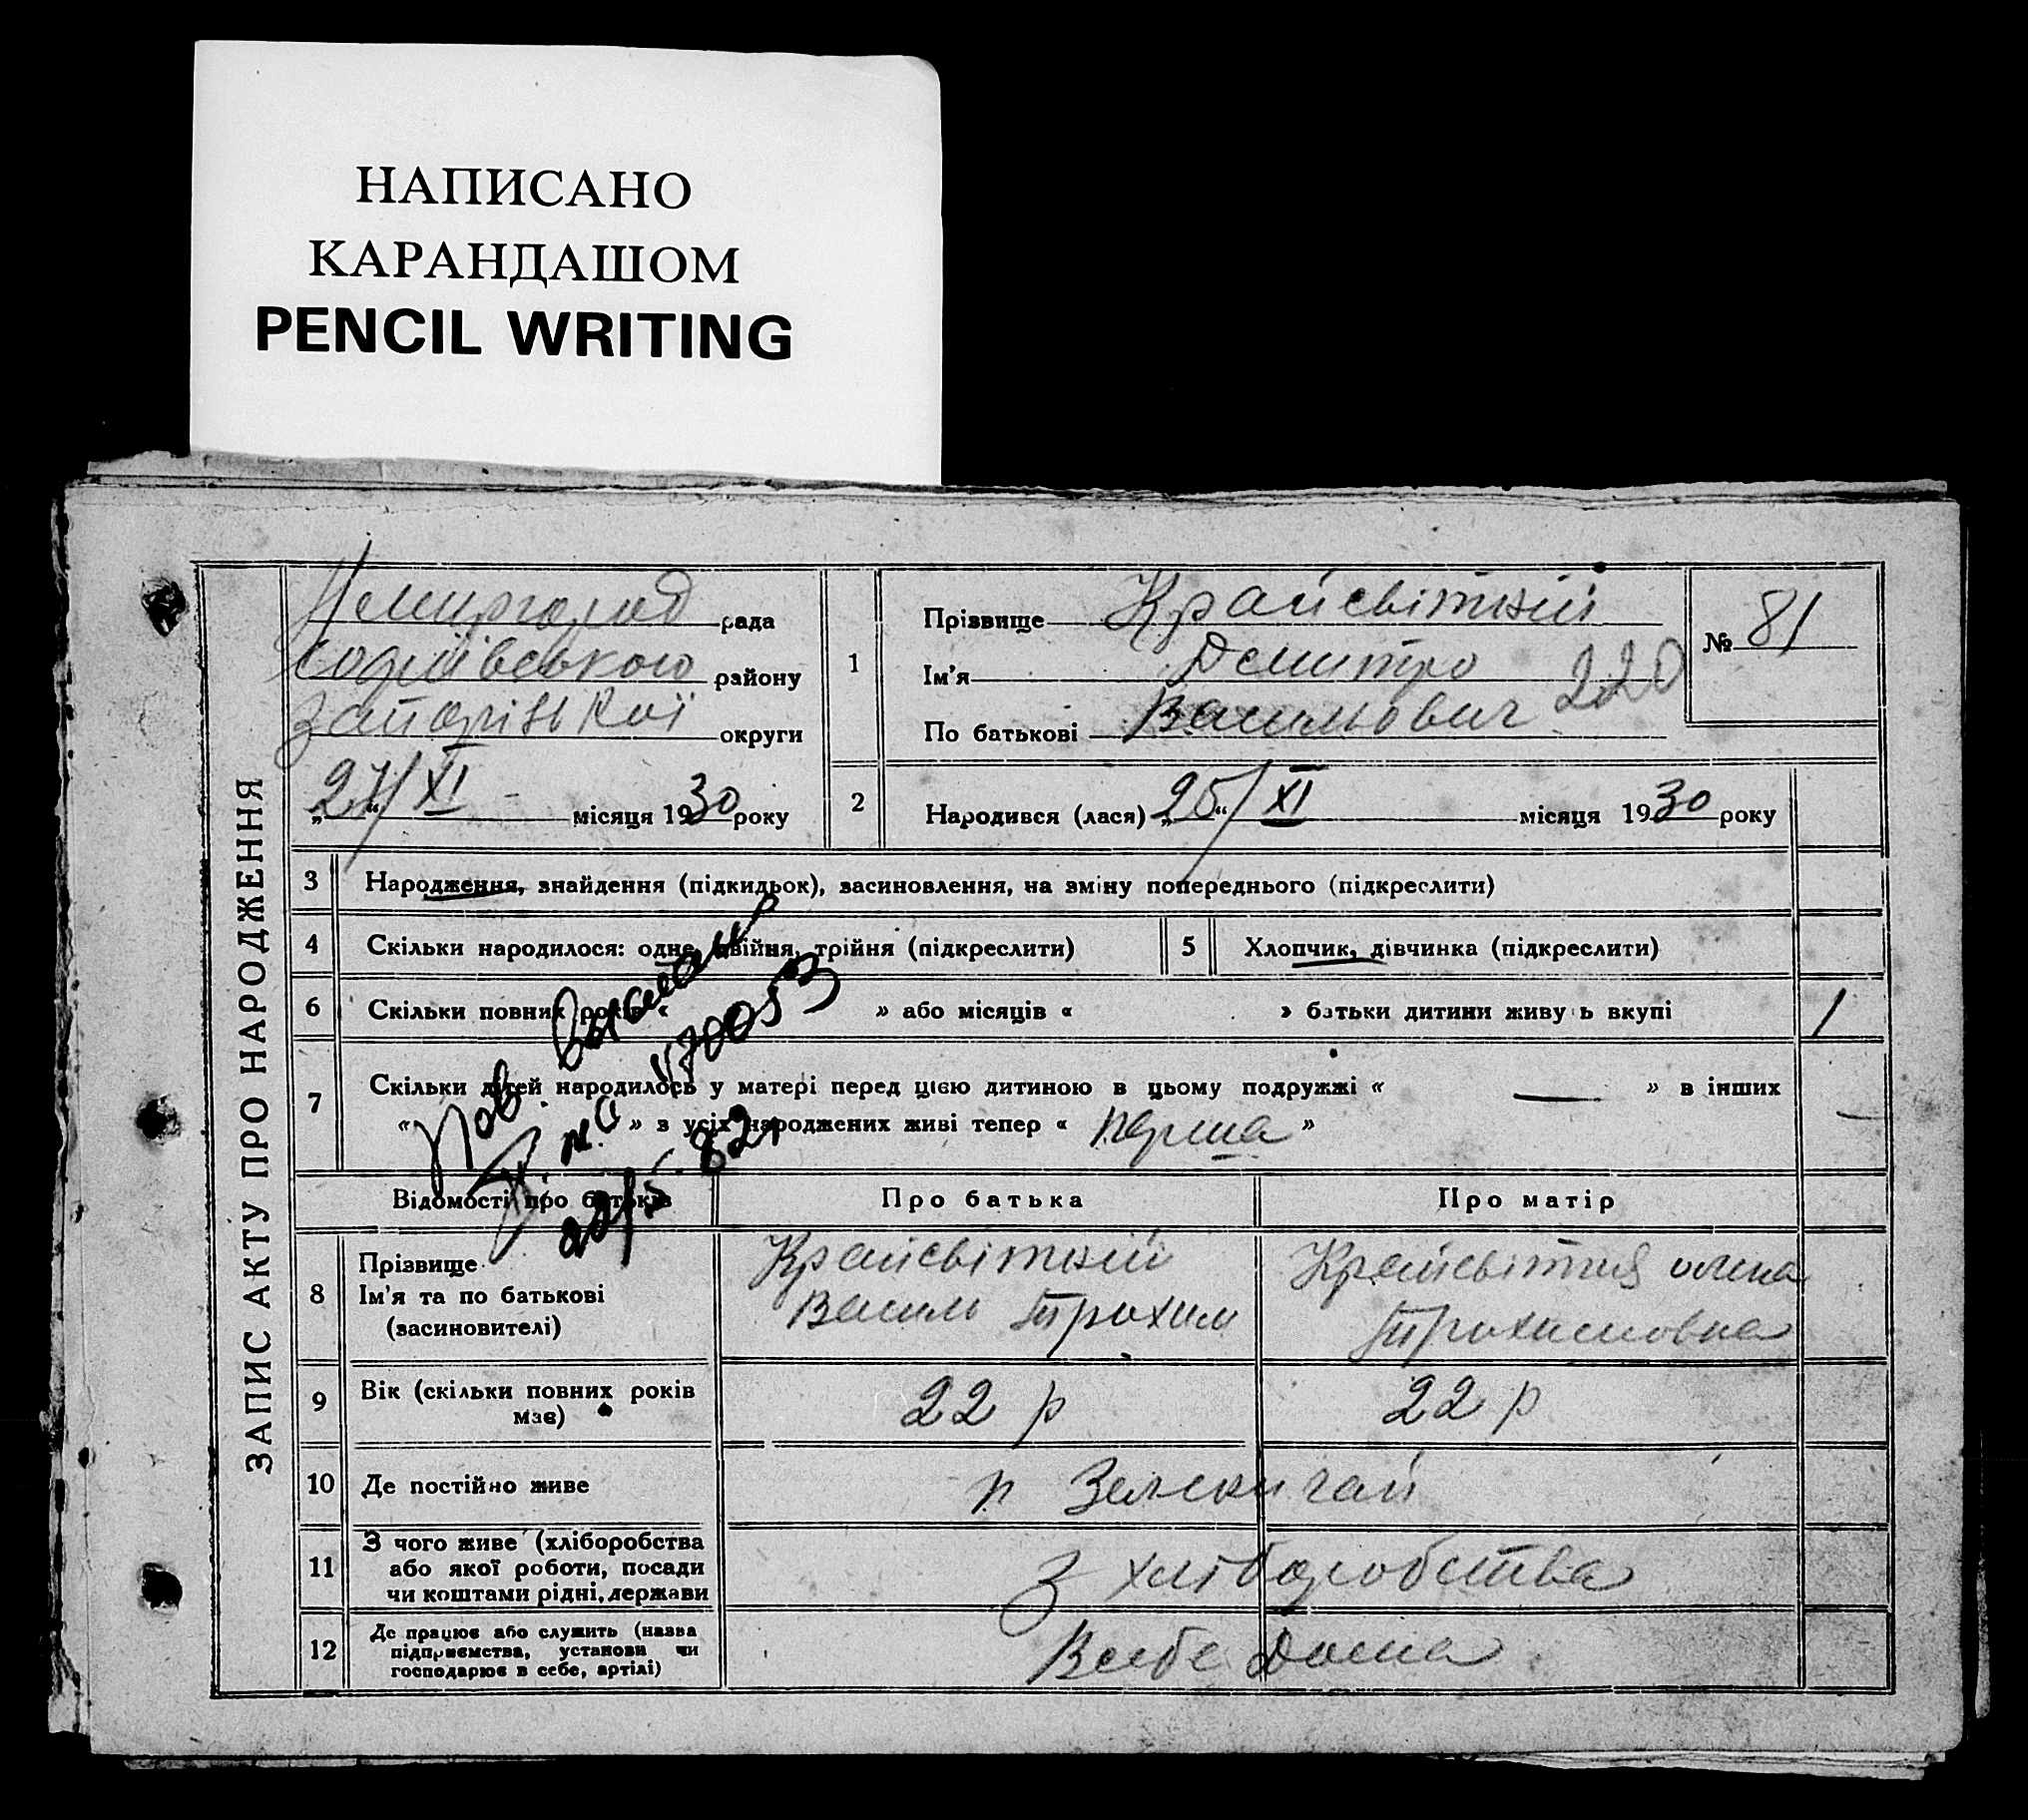 НАПИСАНО
КАРАНДАШОМ
PENCIL WRITING
ЗАПИС АКТУ ПРО НАРОДЖЕННЯ
рада
Софіївського району
Запорізької округи
„27“/XI місяця 1930 року
1
Прізвище Крайсвітній
Ім'я Демитро
По батькові Васильович 220
№ 81
2
Народився (лася) „25“/XI місяця 1930 року
3 Народження, знайдення (підкидьок), засиновлення, на зміну попереднього (підкреслити)
4 Скільки народилося: одне, двійня, трійня (підкреслити)
5 Хлопчик, дівчинка (підкреслити)
6 Скільки повних років « » або місяців « » батьки дитини живуть вкупі
1
7 Скільки дітей народилось у матері перед цією дитиною в цьому подружжі « — » в інших
« » з усіх народжених живі тепер « перша »
Пов.
22/5. 82
Відомості про батьків
Про батька
Про матір
8 Прізвище
Ім'я та по батькові
(засиновителі)
Крайсвітній
Василь Трохим
Крайсвітня олена
Трохимовна
9 Вік (скільки повних років
має)
22 р
22 р
10 Де постійно живе
п Зелений гай
11 З чого живе (хліборобства
або якої роботи, посади
чи коштами рідні, держави
З хліборобства
12 Де працює або служить (назва
підприємства, установи чи
господарює в себе, артілі)
Всебе Дома